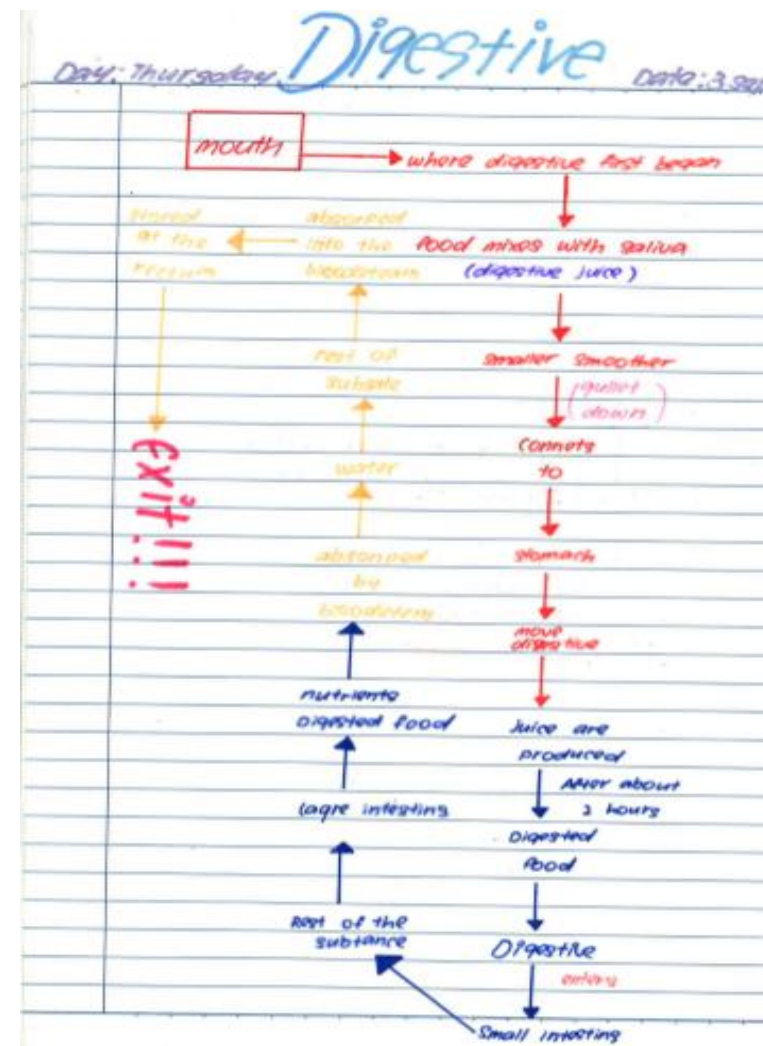 Digestive
Day: Thursday
Date: 3 Sep
mouth
where digestive first began
food mixes with saliva
(digestive juice)
smaller smoother
(gullet
down)
Connets
to
stomach
move
digestive
Juice are
produced
After about
2 hours
Digested
food
Digestive
enters
Small intesting
Rest of the
subtance
lagre intesting
nutriente
Digested food
by
water
rest of
absorbed
into the
stored
at the
rectum
exit!!!